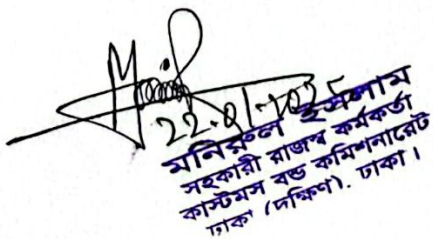 22-01-2025
মনিরুল ইসলাম
সহকারী রাজস্ব কর্মকর্তা
কাস্টমস বন্ড কমিশনারেট
ঢাকা (দক্ষিণ). ঢাকা।